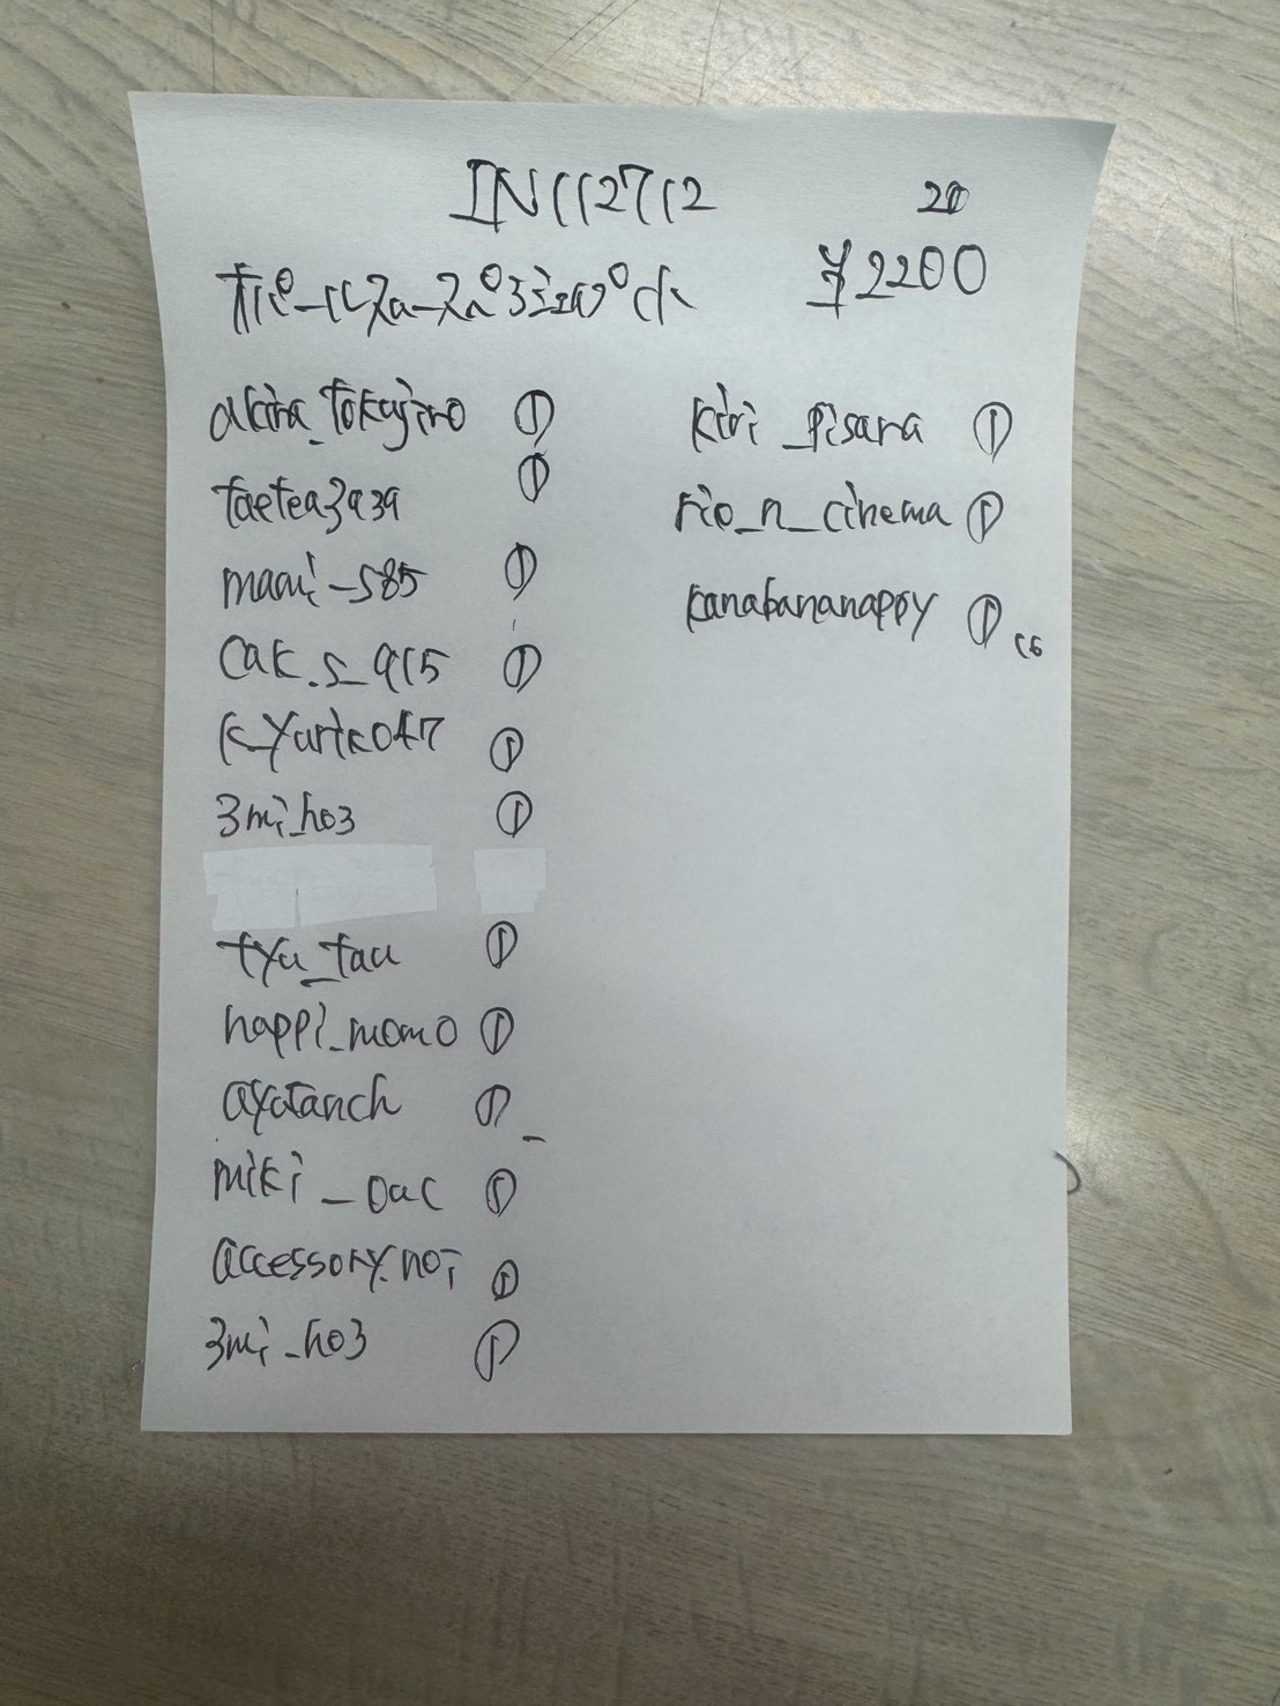 IN1127112
20
¥2200
akira_tokajiro ①
taetea3a39 ①
mami_s85 ①
cak.s_915 ①
k_yuriko47 ①
3mi_ho3 ①
tyu_tau ①
happi_momo ①
ayatanch ①
miki_oac ①
accessory.noi ①
3mi_ho3 ①
kiri_pisara ①
rio_n_cinema ①
kanabananappy ①
16